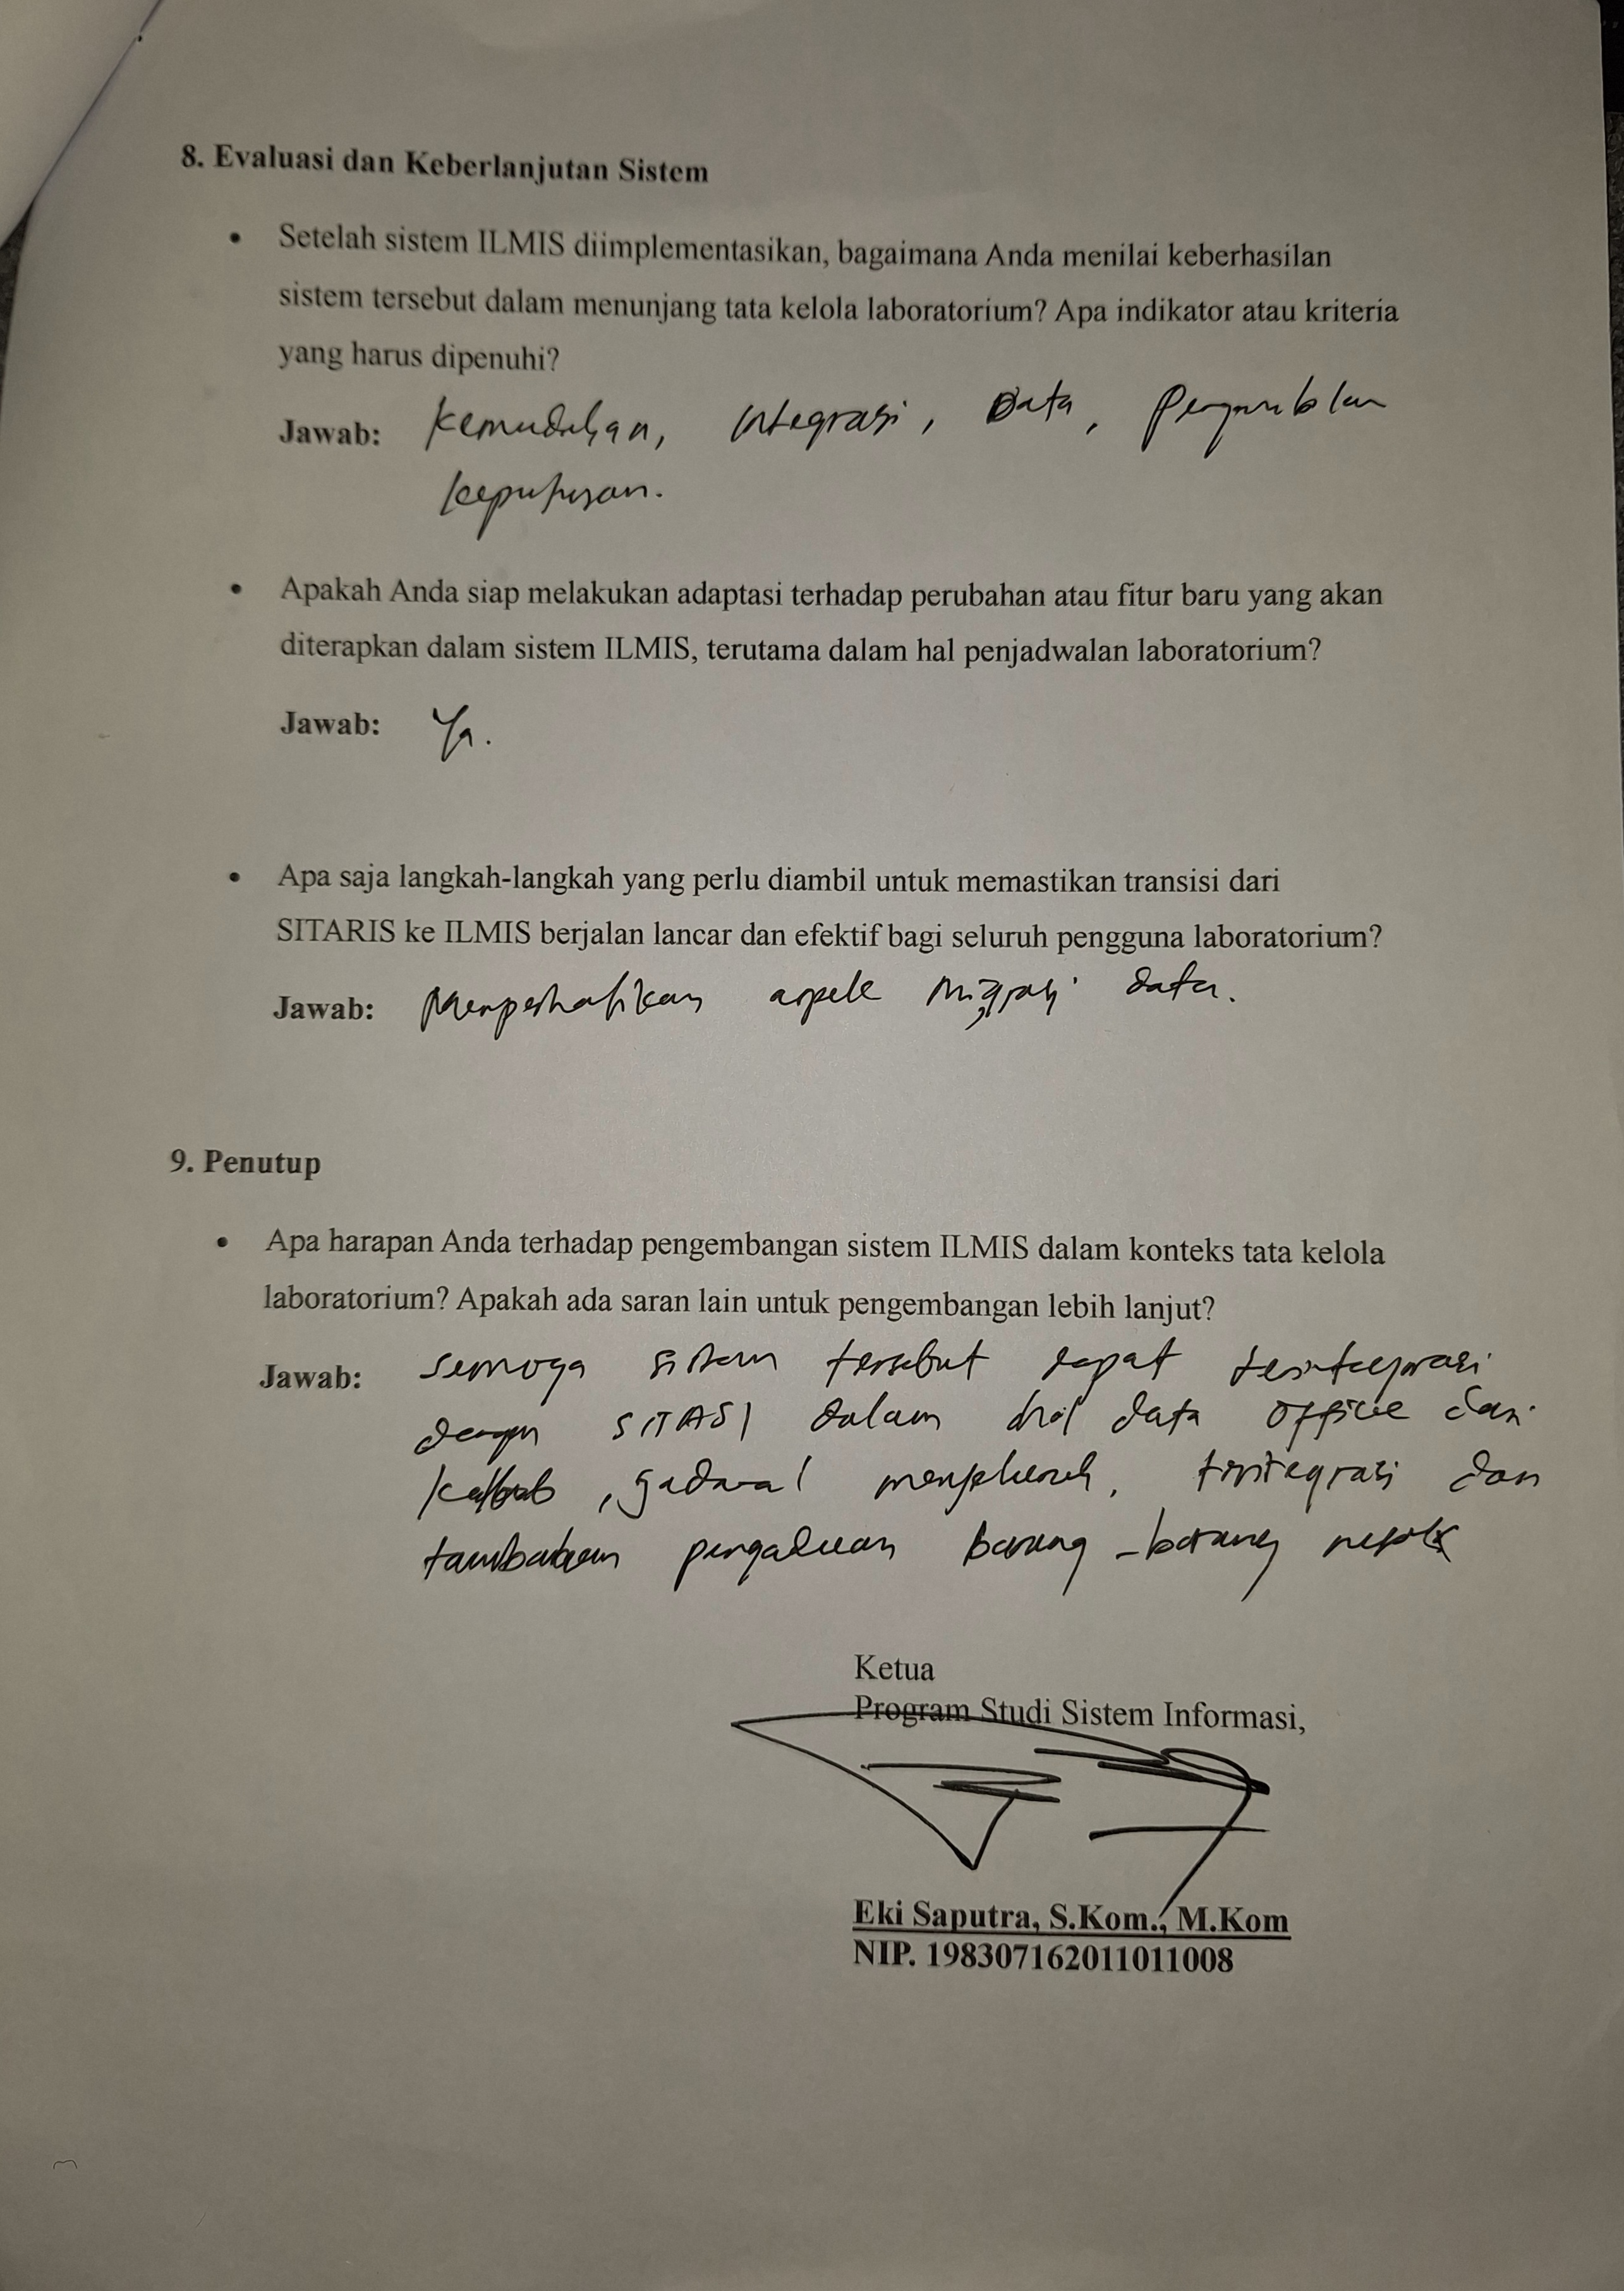 8. Evaluasi dan Keberlanjutan Sistem
• Setelah sistem ILMIS diimplementasikan, bagaimana Anda menilai keberhasilan
sistem tersebut dalam menunjang tata kelola laboratorium? Apa indikator atau kriteria
yang harus dipenuhi?
Jawab: Kemudahan, Integrasi, Data, Pengambilan
keputusan.
• Apakah Anda siap melakukan adaptasi terhadap perubahan atau fitur baru yang akan
diterapkan dalam sistem ILMIS, terutama dalam hal penjadwalan laboratorium?
Jawab: Ya.
• Apa saja langkah-langkah yang perlu diambil untuk memastikan transisi dari
SITARIS ke ILMIS berjalan lancar dan efektif bagi seluruh pengguna laboratorium?
Jawab: Memperhatikan aspek migrasi data.
9. Penutup
• Apa harapan Anda terhadap pengembangan sistem ILMIS dalam konteks tata kelola
laboratorium? Apakah ada saran lain untuk pengembangan lebih lanjut?
Jawab: semoga sistem tersebut dapat terintegrasi
dengan SITASI dalam hal data office dan
kalab, jadwal menyeluruh, terintegrasi dan
tambahan pengaduan barang-barang
Ketua
Program Studi Sistem Informasi,
Eki Saputra, S.Kom., M.Kom
NIP. 198307162011011008